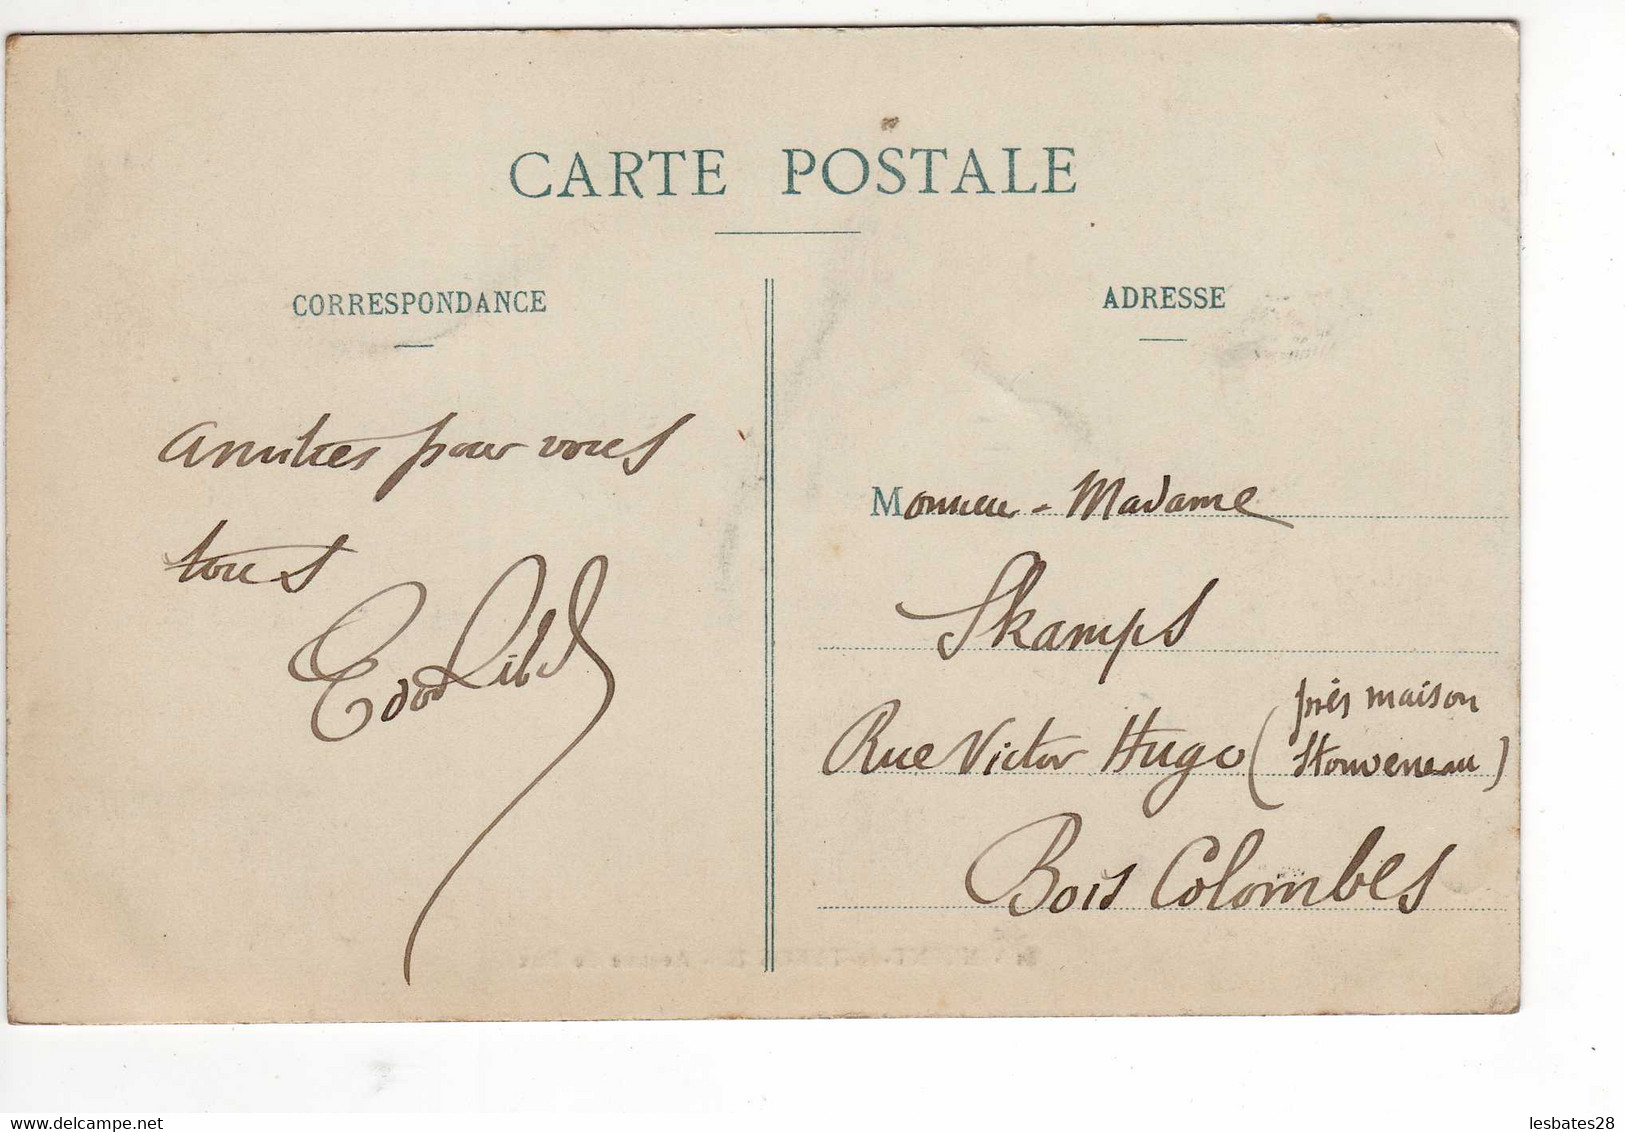 CARTE POSTALE
CORRESPONDANCE
ADRESSE
amitiés pour vous
tous
Monsieur - Madame
Skamps
Rue Victor Hugo (près maison
Stouveneau)
Bois Colombes
delcampe.net
lesbates28